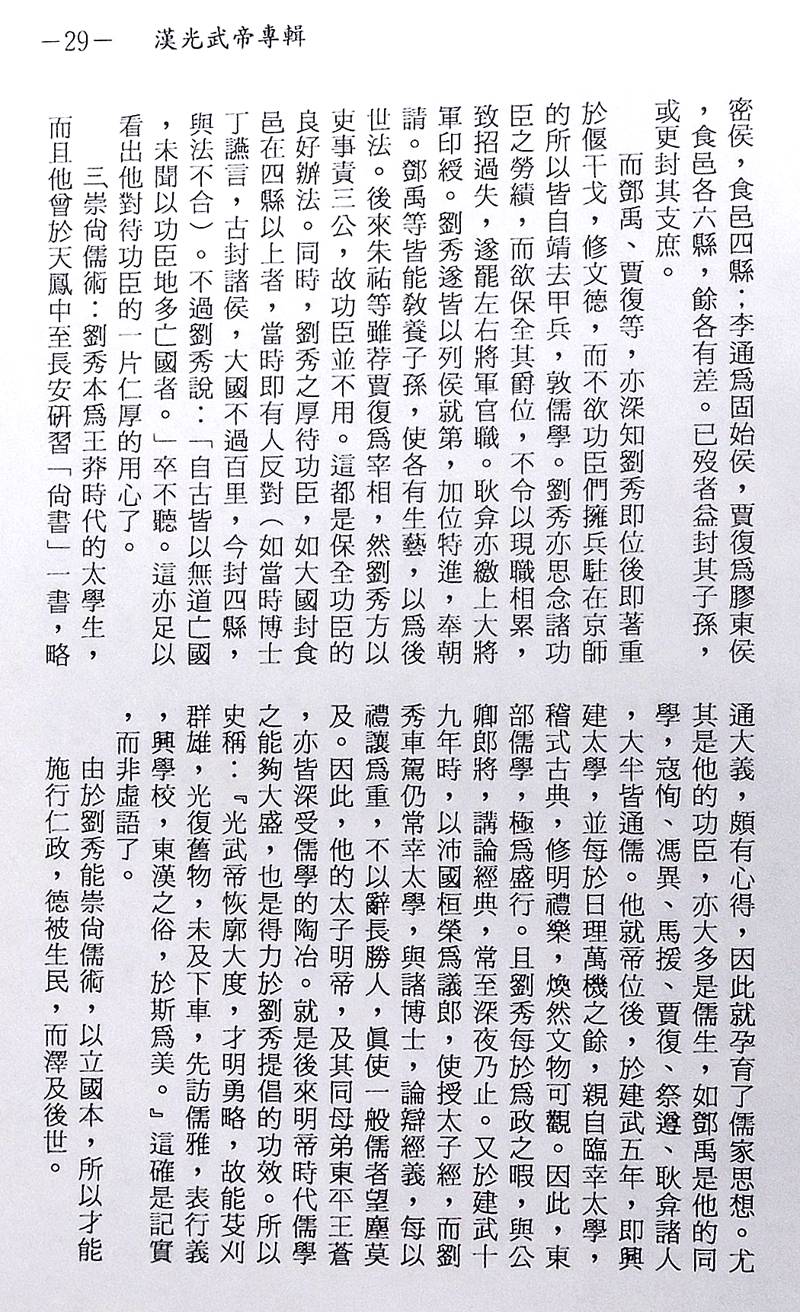 漢光武帝專輯
—29—
密侯，食邑四縣；李通爲固始侯，賈復爲膠東侯
，食邑各六縣，餘各有差。已歿者益封其子孫，
或更封其支庶。
而鄧禹、賈復等，亦深知劉秀即位後即著重
於偃干戈，修文德，而不欲功臣們擁兵駐在京師
的所以皆自靖去甲兵，敦儒學。劉秀亦思念諸功
臣之勞績，而欲保全其爵位，不令以現職相累，
致招過失，遂罷左右將軍官職。耿弇亦繳上大將
軍印綬。劉秀遂皆以列侯就第，加位特進，奉朝
請。鄧禹等皆能敎養子孫，使各有生藝，以爲後
世法。後來朱祐等雖荐賈復爲宰相，然劉秀方以
吏事責三公，故功臣並不用。這都是保全功臣的
良好辦法。同時，劉秀之厚待功臣，如大國封食
邑在四縣以上者，當時即有人反對（如當時博士
丁讌言，古封諸侯，大國不過百里，今封四縣，
與法不合）。不過劉秀說：「自古皆以無道亡國
，未聞以功臣地多亡國者。」卒不聽。這亦足以
看出他對待功臣的一片仁厚的用心了。
三、崇尙儒術：劉秀本爲王莽時代的太學生，
而且他曾於天鳳中至長安研習「尙書」一書，略
通大義，頗有心得，因此就孕育了儒家思想。尤
其是他的功臣，亦大多是儒生，如鄧禹是他的同
學，寇恂、馮異、馬援、賈復、祭遵、耿弇諸人
，大半皆通儒。他就帝位後，於建武五年，即興
建太學，並每於日理萬機之餘，親自臨幸太學，
稽式古典，修明禮樂，煥然文物可觀。因此，東
部儒學，極爲盛行。且劉秀每於爲政之暇，與公
卿郎將，講論經典，常至深夜乃止。又於建武十
九年時，以沛國桓榮爲議郎，使授太子經，而劉
秀車駕仍常幸太學，與諸博士，論辯經義，每以
禮讓爲重，不以辭長勝人，眞使一般儒者望塵莫
及。因此，他的太子明帝，及其同母弟東平王蒼
，亦皆深受儒學的陶冶。就是後來明帝時代儒學
之能夠大盛，也是得力於劉秀提倡的功效。所以
史稱：『光武帝恢廓大度，才明勇略，故能芟刈
群雄，光復舊物，未及下車，先訪儒雅，表行義
，興學校，東漢之俗，於斯爲美。』這確是記實
，而非虛語了。
由於劉秀能崇尙儒術，以立國本，所以才能
施行仁政，德被生民，而澤及後世。